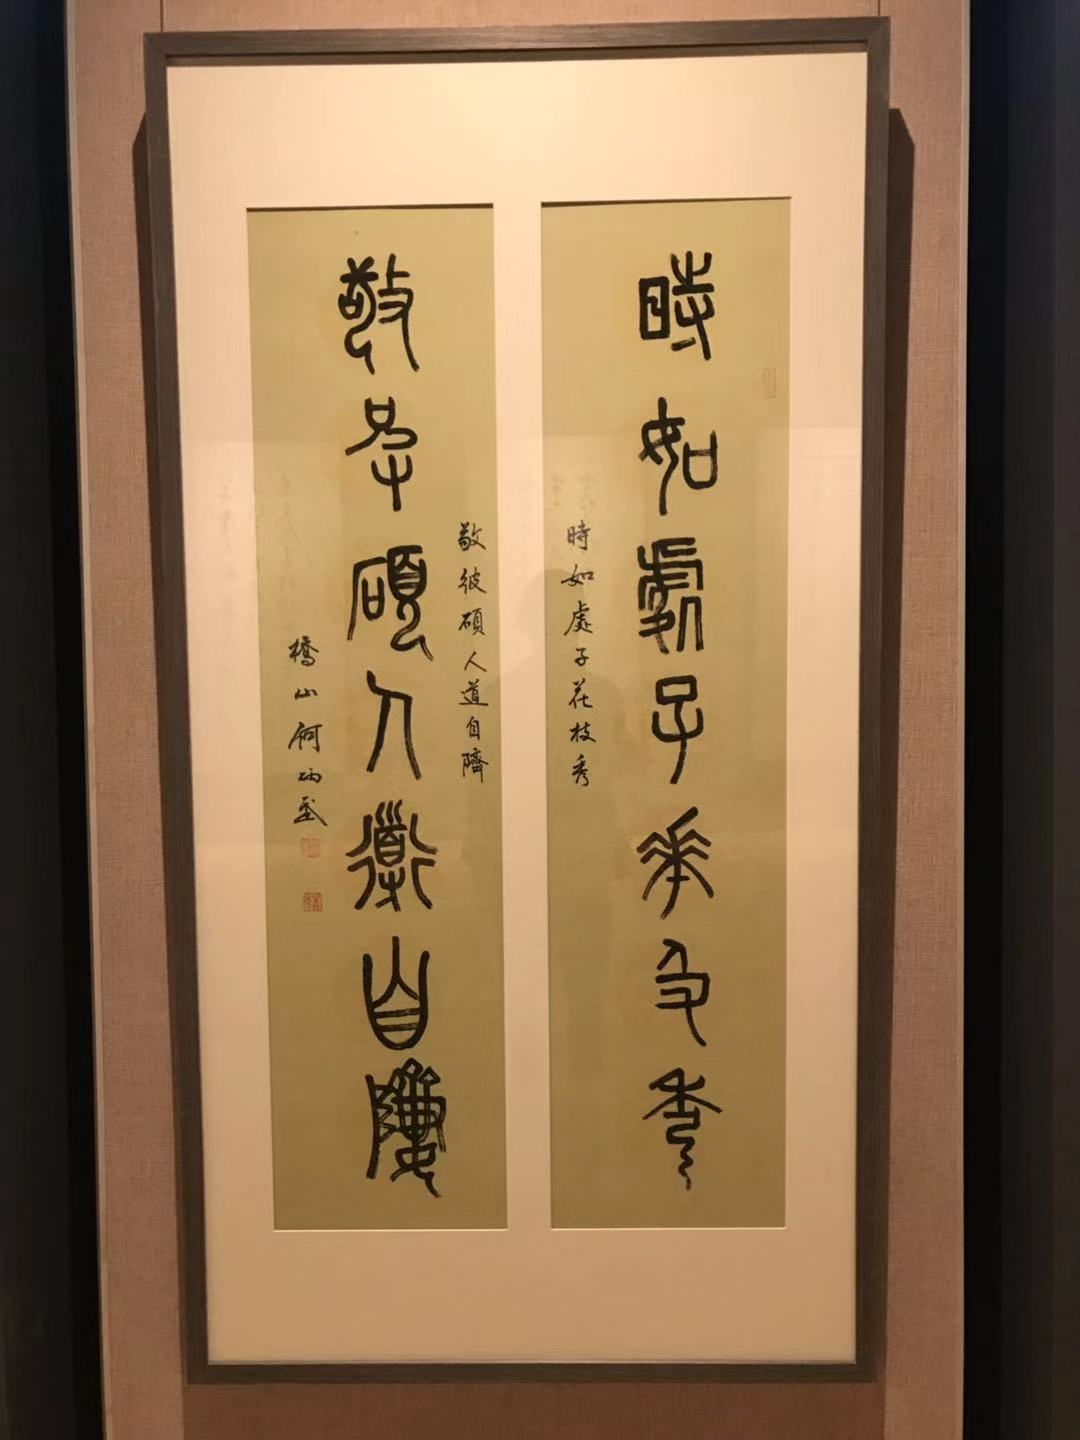 時如處子華支秀
時如處子花枝秀
敬彼碩人道自隮
敬碩人道自隮
橋山何炳武